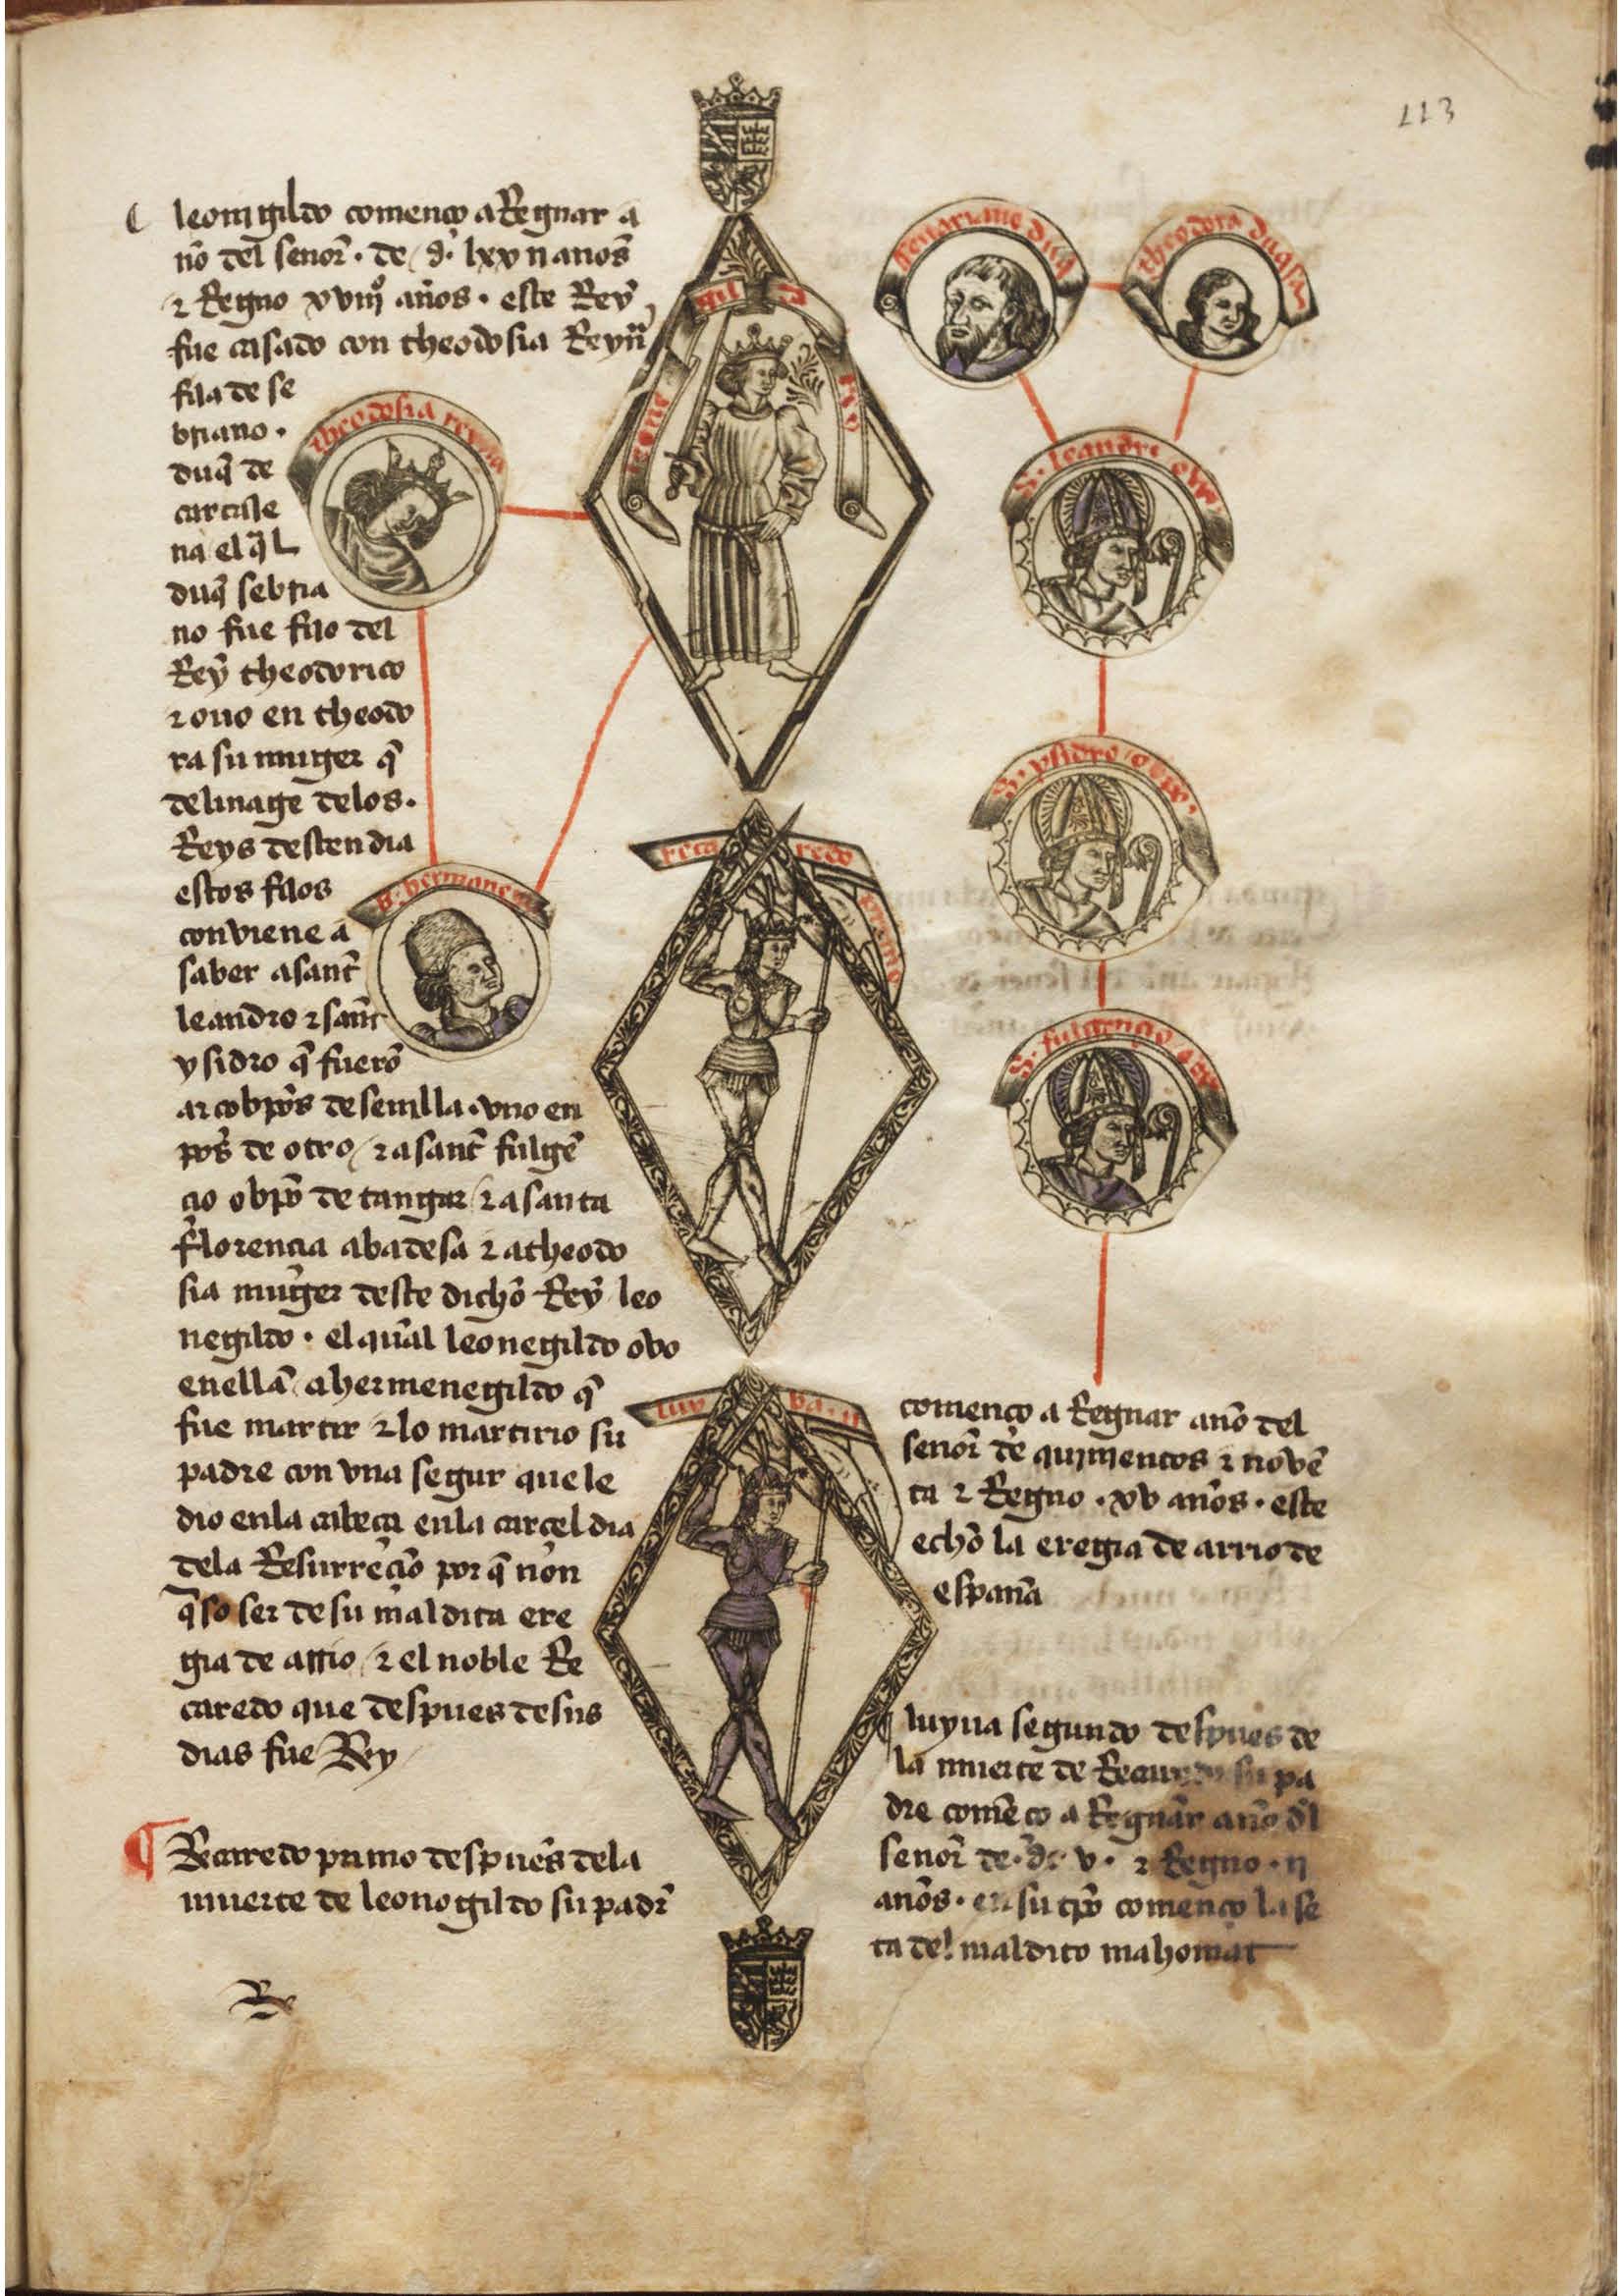 113
leonigildo començo a Regnar a
ño del señor · de · d · lxxv
⁊ Regno xviijº años · este Rey
fue casado con theodosia Reyn̄
fija de se
briano ·
duq̄ de
cartaje
na el q̄l
duq̄ sebria
no fue fijo del
Rey theodorico
⁊ ouo en theodo
ra su muger q̄
de linage de los ·
Reys desçendia
estos fijos
conviene a
saber a sant
leandro ⁊ sant
ysidro q̄ fuerō
arçobp̄os de seuilla · vno en
pos de otro / ⁊ a sant fulgē
çio obp̄o de / ⁊ a santa
florençia abadesa ⁊ a theodo
sia muger deste dicho Rey leo
negildo · el qual leonegildo ovo
en ella a hermenegildo q̄
fue martir ⁊ lo martirio su
padre con vna segur que le
dio en la cabeça en la carçel dia
de la Resurreçiō por q̄ non
q̄so ser de su maldita ere
gia de arrio / ⁊ el noble Re
caredo que despues de sus
dias fue Rey
¶ Recaredo primo despues de la
muerte de leonogildo su padr̄
Re
leone gil do rey
theodosia reyna
theodora duqsa
S. leandr obp
S. ysidro obp
S. fulgençio obp
reca redo primo
luy va · ii
començo a Regnar año del
señor de quinientos ⁊ novē
ta ⁊ Regno · xv años · este
echo la eregia de arrio de
españa
¶ luyua segundo despues de
la muerte de Recaredo su pa
dre comēço a Regnar año dl
señor de · dc v · ⁊ Regno · ii
años · en su tp̄o començo la se
ta del maldito mahomat